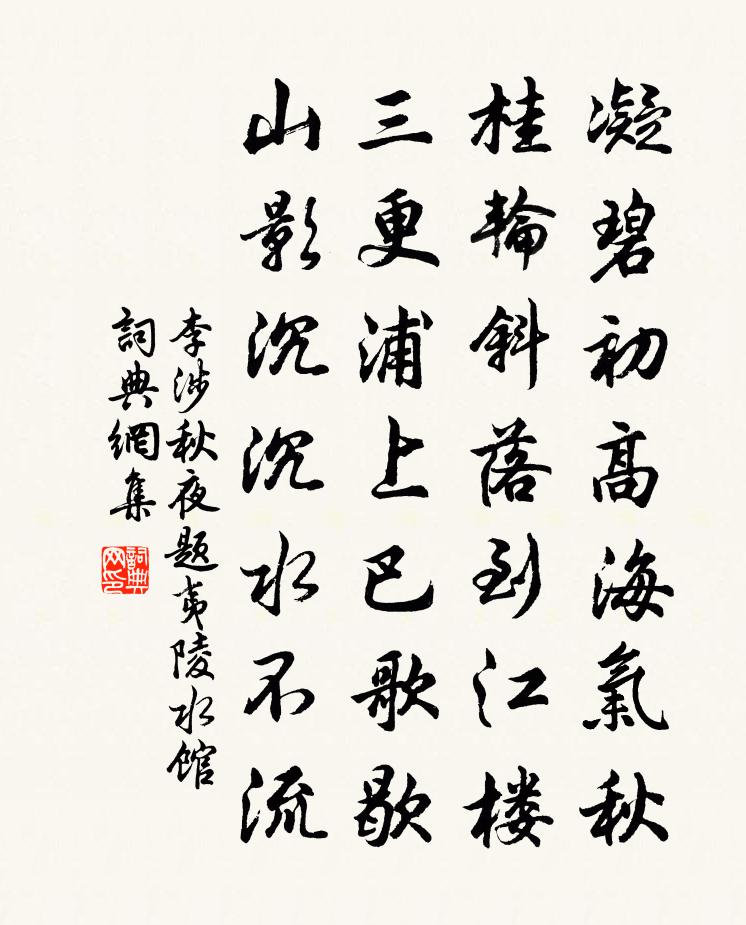 凝碧初高海氣秋
桂輪斜落到江楼
三更浦上巴歌歇
山影沉沉水不流
李涉秋夜題夷陵水館
詞典網集
詞典網印